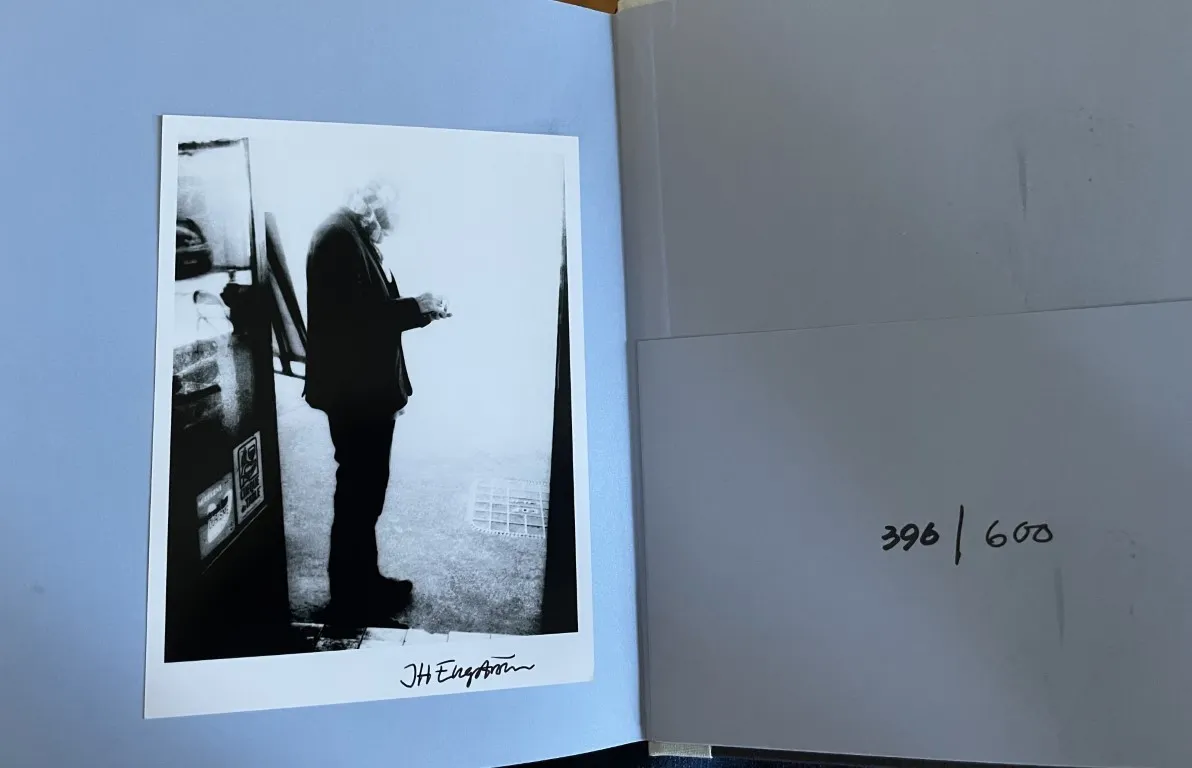 JH Engström
396 / 600